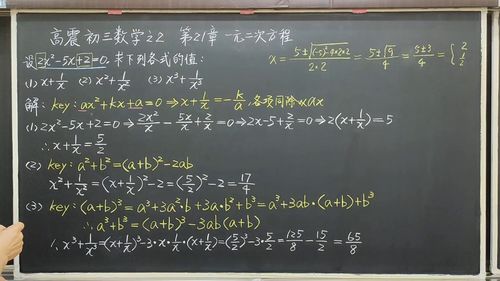 高震初三数学之2 第21章 一元二次方程
设2x²-5x+2=0. 求下列各式的值:
x=\frac{5±\sqrt{(-5)²-4*2*2}}{2·2}=\frac{5±\sqrt{9}}{4}=\frac{5±3}{4}={2, \frac{1}{2}
(1) x+\frac{1}{x} (2) x²+\frac{1}{x²} (3) x³+\frac{1}{x³}
解: key: ax²+kx+a=0⇒x+\frac{1}{x}=-\frac{k}{a}, 各项同除以ax
(1) 2x²-5x+2=0⇒\frac{2x²}{x}-\frac{5x}{x}+\frac{2}{x}=0⇒2x-5+\frac{2}{x}=0⇒2(x+\frac{1}{x})=5
∴x+\frac{1}{x}=\frac{5}{2}
(2) key: a²+b²=(a+b)²-2ab
x²+\frac{1}{x²}=(x+\frac{1}{x})²-2=(\frac{5}{2})²-2=\frac{17}{4}
(3) key: (a+b)³=a³+3a²·b+3a·b²+b³=a³+3ab·(a+b)+b³
∴a³+b³=(a+b)³-3ab(a+b)
∴x³+\frac{1}{x³}=(x+\frac{1}{x})³-3·x·\frac{1}{x}·(x+\frac{1}{x})=(\frac{5}{2})³-3·\frac{5}{2}=\frac{125}{8}-\frac{15}{2}=\frac{65}{8}